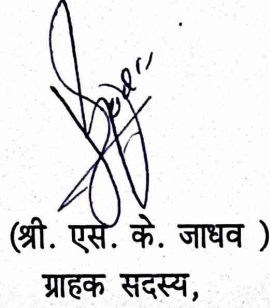 (श्री. एस. के. जाधव )
ग्राहक सदस्य,